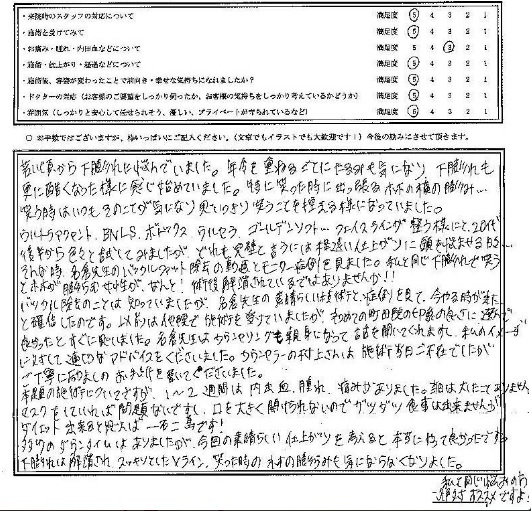 ・来院時のスタッフの対応について 満足度 5 4 3 2 1
・施術を受けてみて 満足度 5 4 3 2 1
・お痛み・腫れ・内出血などについて 満足度 5 4 3 2 1
・施術・仕上がり・経過などについて 満足度 5 4 3 2 1
・施術後、容姿が変わったことで前向き・幸せな気持ちになれましたか? 満足度 5 4 3 2 1
・ドクターの対応(お客様のご要望をしっかり伺ったか、お客様の気持ちをしっかり考えているかどうか) 満足度 5 4 3 2 1
・雰囲気(しっかりと安心して任せられそう、優しい、プライベートが守られているなど) 満足度 5 4 3 2 1
○ お手数ではございますが、枠いっぱいにご記入ください。(文章でもイラストでも大歓迎です!)今後の励みにさせて頂きます。
若い頃から下膨れに悩んでいました。年令を重ねるごとにたるみも気になり、下膨れも
更に酷くなった様に感じ悩めていました。特に笑った時に出っ張るホホの横の膨らみ…
笑う時はいつもそのことが気になり思いっきり笑うことを控える様になっていました。
ウルトラアクセント、BNLS、ボトックス、ウルセラ、ゴールデンリフト…フェイスラインが整う様にと、20代
後半から色々と試してみましたが、どれも完璧と言うには程遠い仕上がりに頭を悩ませる日々…
そんな時、名倉先生のバッカルファット除去の動画とモニター症例を見ました。私と同じ下膨れで笑う
とホホが膨らむ女性が、なんと!術後解消されているではありませんか!!
バッカル除去のことは知っていましたが、名倉先生の素晴らしい技術と、症例を見て、今やる時が来た
と確信したのです。以前は他院で施術を受けていましたが、初めての町田院の印象の良さに選んで
良かったとすぐに思いました。名倉先生はカウンセリングも親身になって話を聞いてくれますし、
適切なアドバイスをくださいました。カウンセラーの村上さんは施術当日ご不在でしたが
ご丁寧に励ましのお手紙を書いてくださいました。
本題の施術についてですが、1〜2週間は内出血、腫れ、痛みがありました。
マスクをしていれば問題ないですし、口を大きく開けられないのでガツガツ食事は出来ませんが
ダイエット出来ると思えば一石二鳥です!
多少のダウンタイムはありましたが、今回の素晴らしい仕上がりを考えると本当にやって良かったです。
下膨れは解消され、スッキリとしたVライン、笑った時のホホの膨らみも気にならなくなりました。
私と同じ悩みの方
絶対オススメですよ!